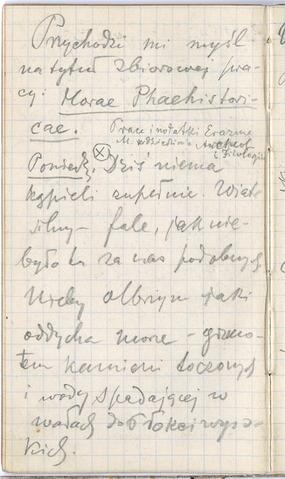 Przychodzi mi myśl
na tytuł zbiorowej pra-
cy: Horae Phaehistori-
cae.
Prace i notatki Erazma
Archeol
i Filologia
Poniedz. Dziś niema
kąpieli zupełnie. Wiatr
silny – fale, jak nie-
było tu za nas podobnych
Niby olbrzym jaki
oddycha morze – grzmo-
tem kamieni toczonych
i wody spadającej w
wałach do 8 łokci wyso-
kich.